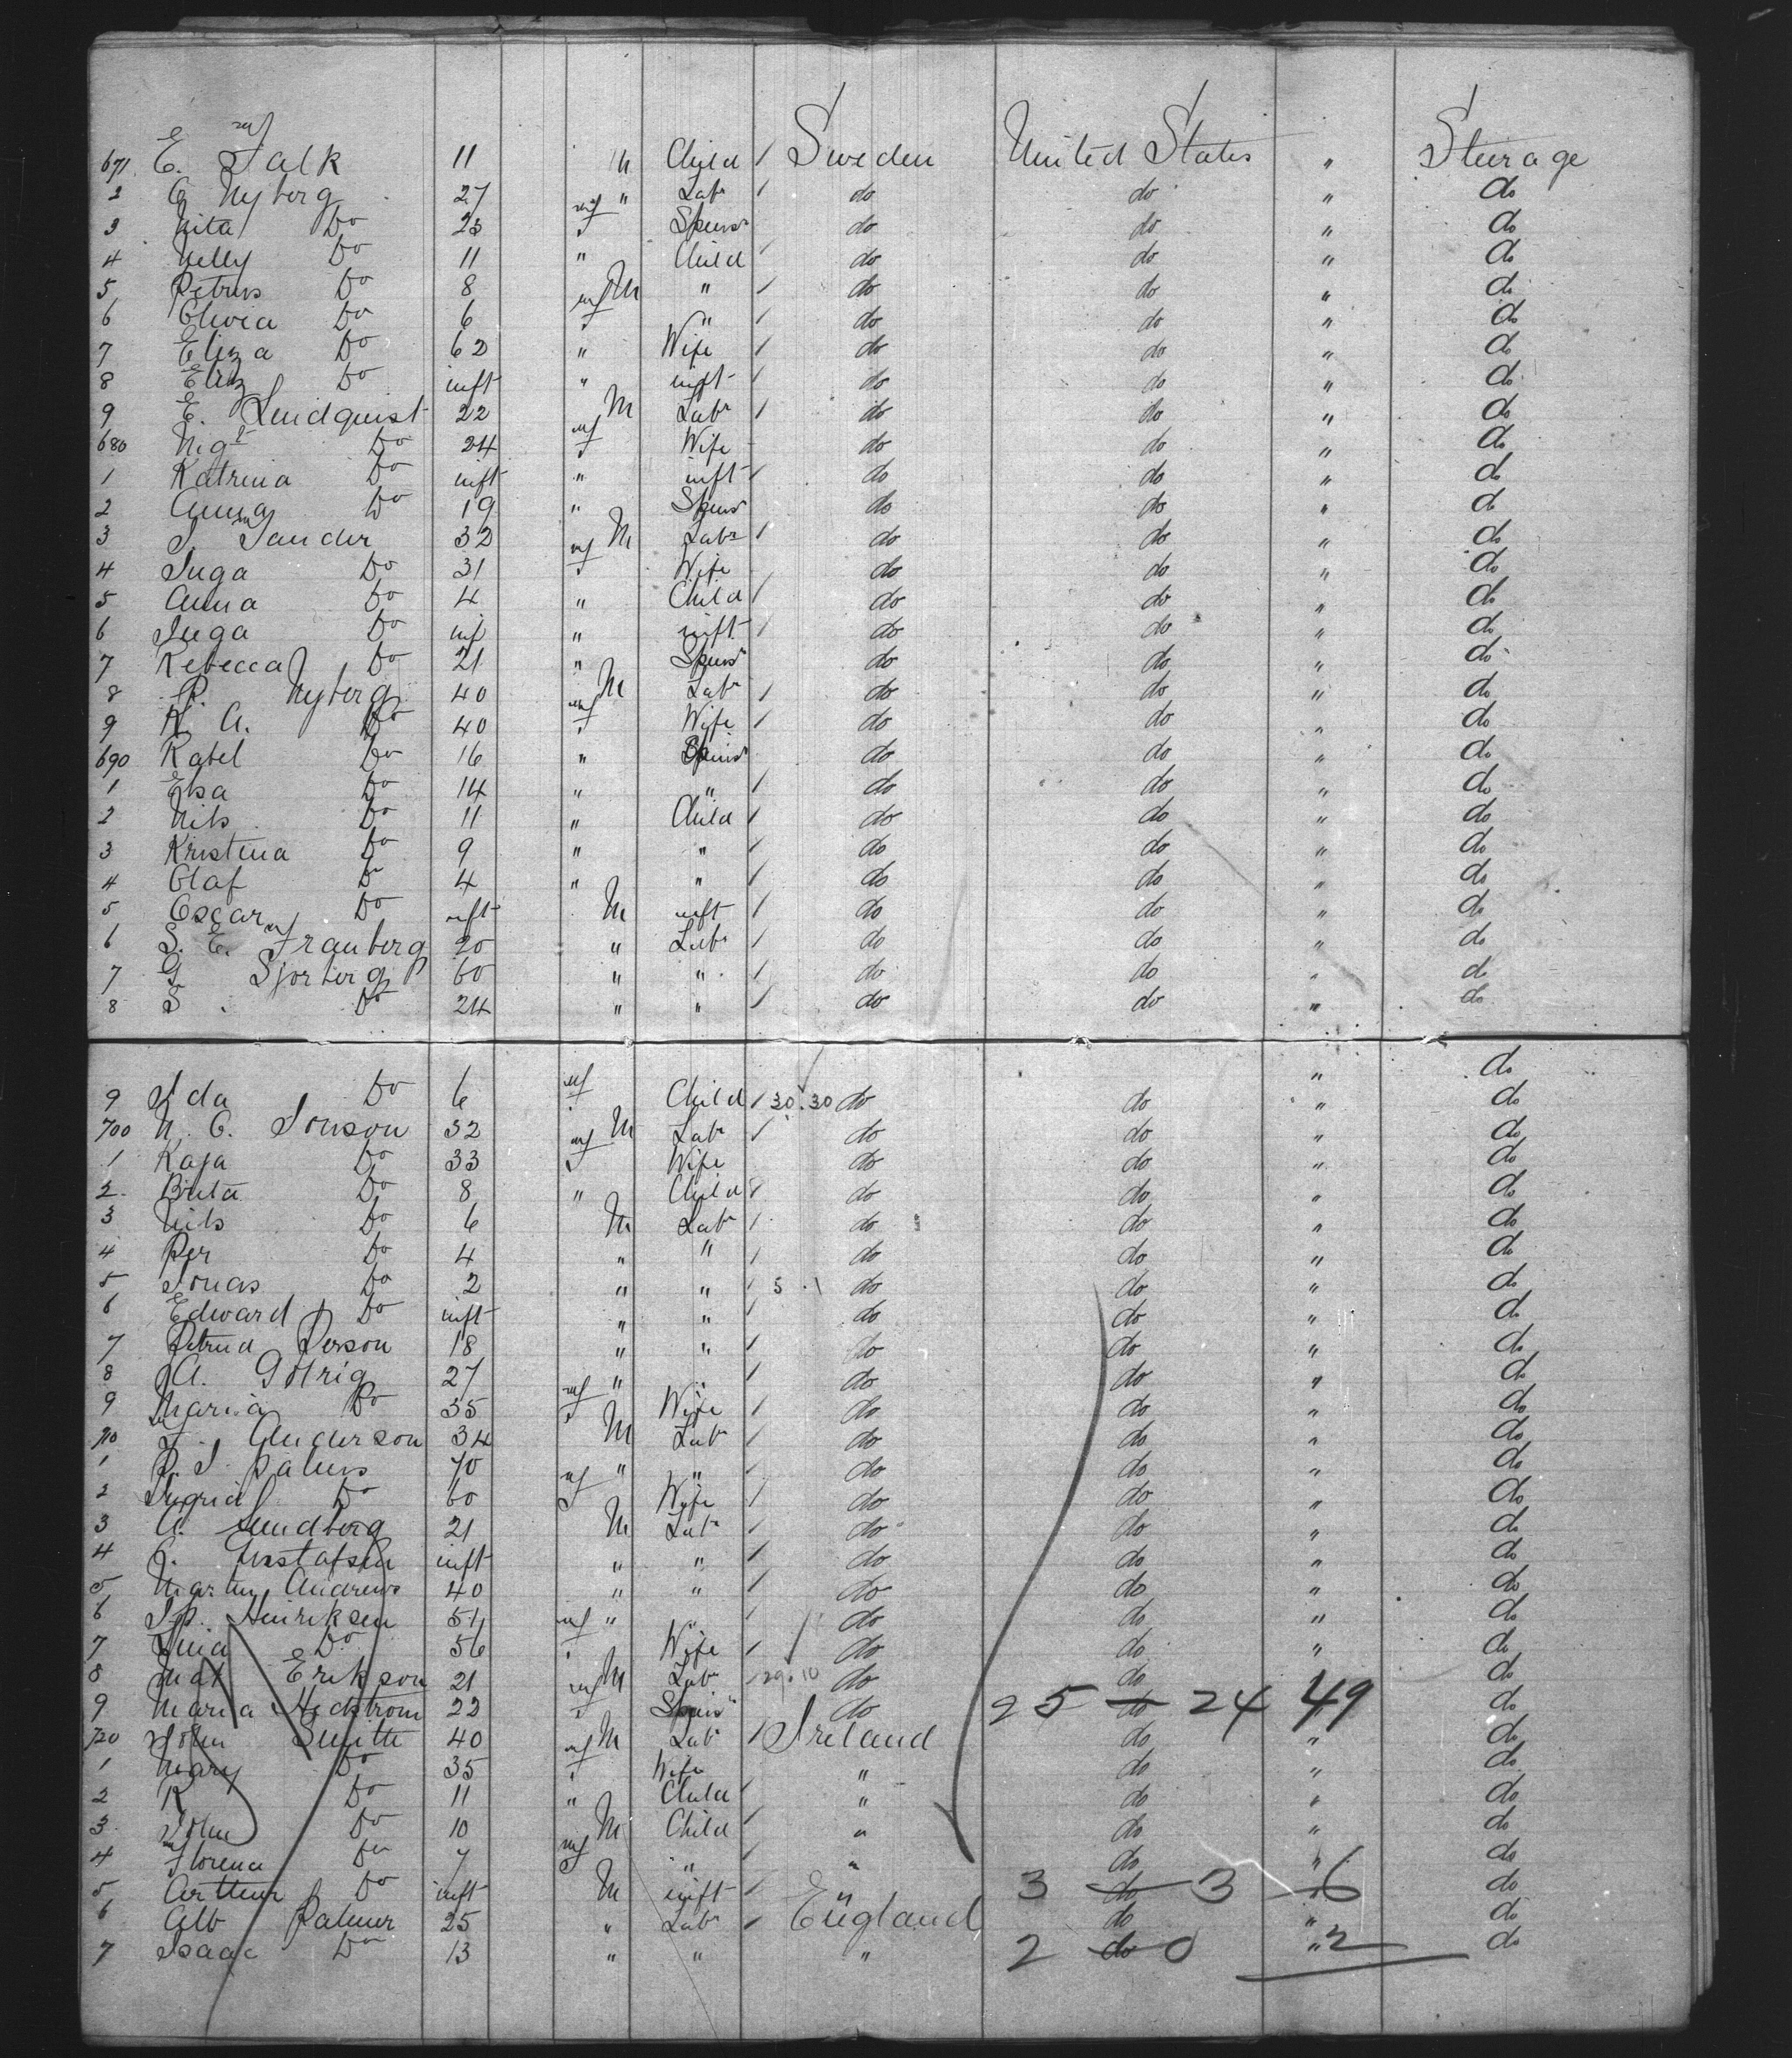 671 E. Falk 11 M Child / Sweden United States " Steerage
2 O Nyberg 27 " Labr / do do " do
3 Nita Do 23 f Spinsr do do " do
4 Nelly Do 11 " Child / do do " do
5 Petrus Do 8 M " / do do " do
6 Olivia Do 6 f " / do do " do
7 Eliza Do 62 " Wife / do do " do
8 Eliz Do inft " inft / do do " do
9 E. Lindquist 22 M Labr / do do " do
680 Migt Do 24 f Wife do do " do
1 Katrina Do inft " inft / do do " do
2 Anna Do 19 " Spinsr do do " do
3 J. Sander 32 M Labr / do do " do
4 Inga Do 31 f Wife do do " do
5 Anna Do 4 " Child / do do " do
6 Inga Do inf " inft / do do " do
7 Rebecca Do 21 " Spinsr do do " do
8 P. Nyberg 40 M Labr / do do " do
9 K A. Do 40 f Wife / do do " do
690 Kabel Do 16 " Spinsr do do " do
1 Elsa Do 14 " " / do do " do
2 Nils Do 11 " Child / do do " do
3 Kristina Do 9 " " / do do " do
4 Olaf Do 4 " " / do do " do
5 Oscar Do inft M inft / do do " do
6 S. E. Franberg 20 " Labr / do do " do
7 G Sjorberg 60 " " / do do " do
8 S Do 24 " " / do do " do
" do
9 Ida Do 6 f Child / 30.30 do do " do
700 N. O. Jonson 32 M Labr / do do " do
1 Kaja Do 33 f Wife do do " do
2 Brita Do 8 " Child / do do " do
3 Nils Do 6 M Labr / do do " do
4 Per Do 4 " " / do do " do
5 Jonas Do 2 " " / 5 . 1 do do " do
6 Edward Do inft " " do do " do
7 Petrud Person 18 " " / do do " do
8 A. Gotrig 27 " " / do do " do
9 Maria Do 35 f Wife / do do " do
710 F. Anderson 34 M Labr / do do " do
1 P. J. Palms 70 " " / do do " do
2 Ingrid Do 60 f Wife / do do " do
3 A. Lundberg 21 M Labr / do do " do
4 G. Gustafsen inft " " / do do " do
5 Martin Andrews 40 " " / do do " do
6 J.p. Heinriksen 54 " " / do do " do
7 Lina Do 56 f Wife / do do " do
8 Mat Erikson 21 M Labr / 29.10 do do do
9 Maria Heckstrom 22 f Spinsr do 25 do 24 49 do
720 John Smith 40 M Labr / Ireland do " do
1 Mary Do 35 f Wife " do " do
2 R Do 11 " Child / " do " do
3 John Do 10 M Child / " do " do
4 Florena Do 7 f " / " do " do
5 Arthur Do inft M inft / 3 do 3 6 do
6 Alb Palmer 25 " Labr / England do " do
7 Isaac Do 13 " " " 2 do 0 " 2 do